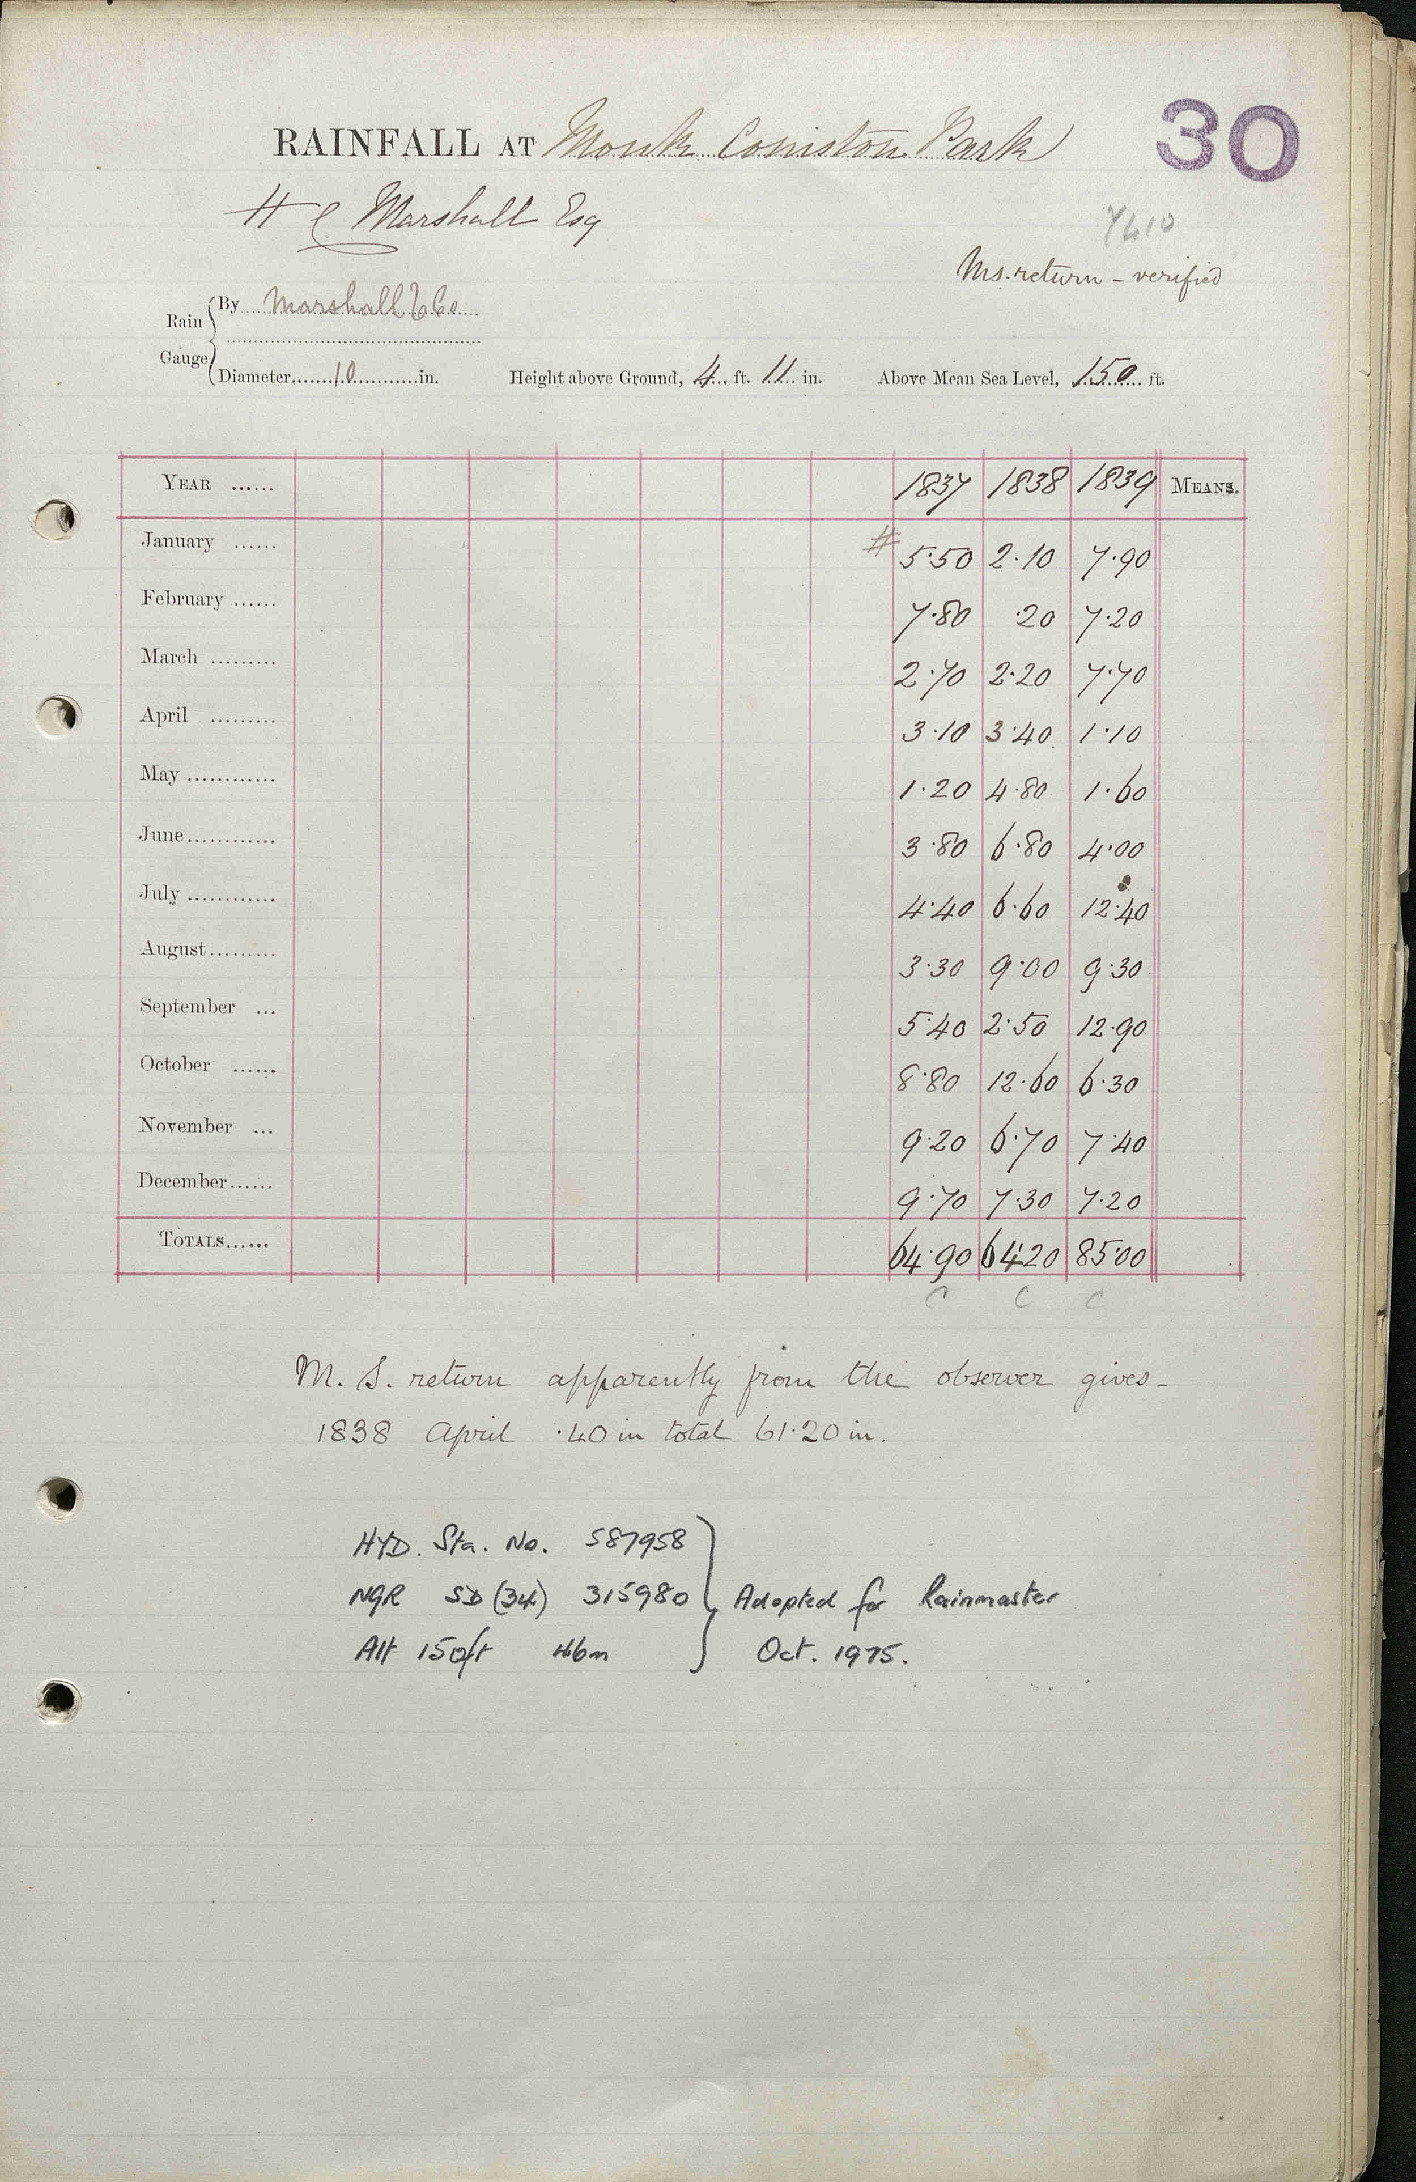 30
RAINFALL AT Monk Coniston Park
H C Marshall Esq
7410
Ms. return - verified
Rain Gauge
By Marshall & Co
Diameter.......10............in. Height above Ground, 4... ft. 11... in. Above Mean Sea Level, 150 ft.
YEAR ...... 1837 1838 1839 MEANS.
January ...... # 5.50 2.10 7.90
February ...... 7.80 .20 7.20
March ......... 2.70 2.20 7.70
April ......... 3.10 3.40 1.10
May ............ 1.20 4.80 1.60
June............ 3.80 6.80 4.00
July ............ 4.40 6.60 12.40
August......... 3.30 9.00 9.30
September ... 5.40 2.50 12.90
October ...... 8.80 12.60 6.30
November ... 9.20 6.70 7.40
December...... 9.70 7.30 7.20
TOTALS...... 64.90 64.20 85.00
C C C
M. S. return apparently from the observer gives -
1838 April .40 in total 61.20 in.
HYD. Sta. No. 587958
NGR SD (34) 315980 Adopted for Rainmaster
Alt 150ft 46m Oct. 1975.